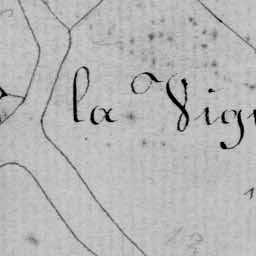 la Vign